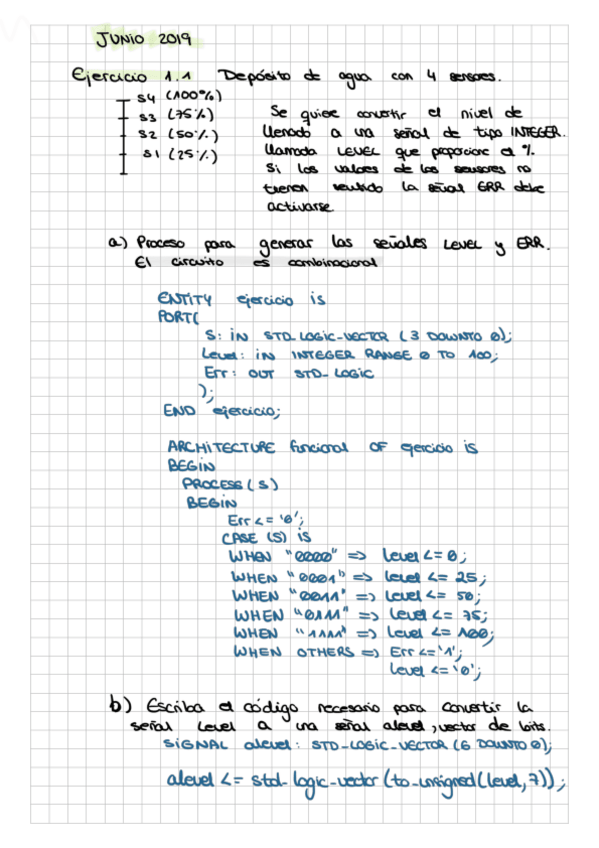 JUNIO 2019
Ejercicio 1.1 Depósito de agua con 4 sensores.
S4 (100%)
S3 (75%)
S2 (50%)
S1 (25%)
Se quiere convertir el nivel de
llenado a una señal de tipo INTEGER.
llamada LEVEL que proporcione el %.
Si los valores de los sensores no
tienen sentido la señal ERR debe
activarse.
a) Proceso para generar las señales LEVEL y ERR.
El circuito es combinacional
ENTITY ejercicio is
PORT(
S: IN STD_LOGIC_VECTOR (3 DOWNTO 0);
Level: IN INTEGER RANGE 0 TO 100;
Err: OUT STD_LOGIC
);
END ejercicio;
ARCHITECTURE funcional OF ejercicio is
BEGIN
PROCESS(S)
BEGIN
Err <= '0';
CASE (S) IS
WHEN "0000" => level <= 0;
WHEN "0001" => level <= 25;
WHEN "0011" => level <= 50;
WHEN "0111" => level <= 75;
WHEN "1111" => level <= 100;
WHEN OTHERS => Err <= '1';
level <= '0';
b) Escriba el código necesario para convertir la
señal level a una señal alevel, vector de bits.
SIGNAL alevel: STD_LOGIC_VECTOR (6 DOWNTO 0);
alevel <= std_logic_vector(to_unsigned(level, 7));